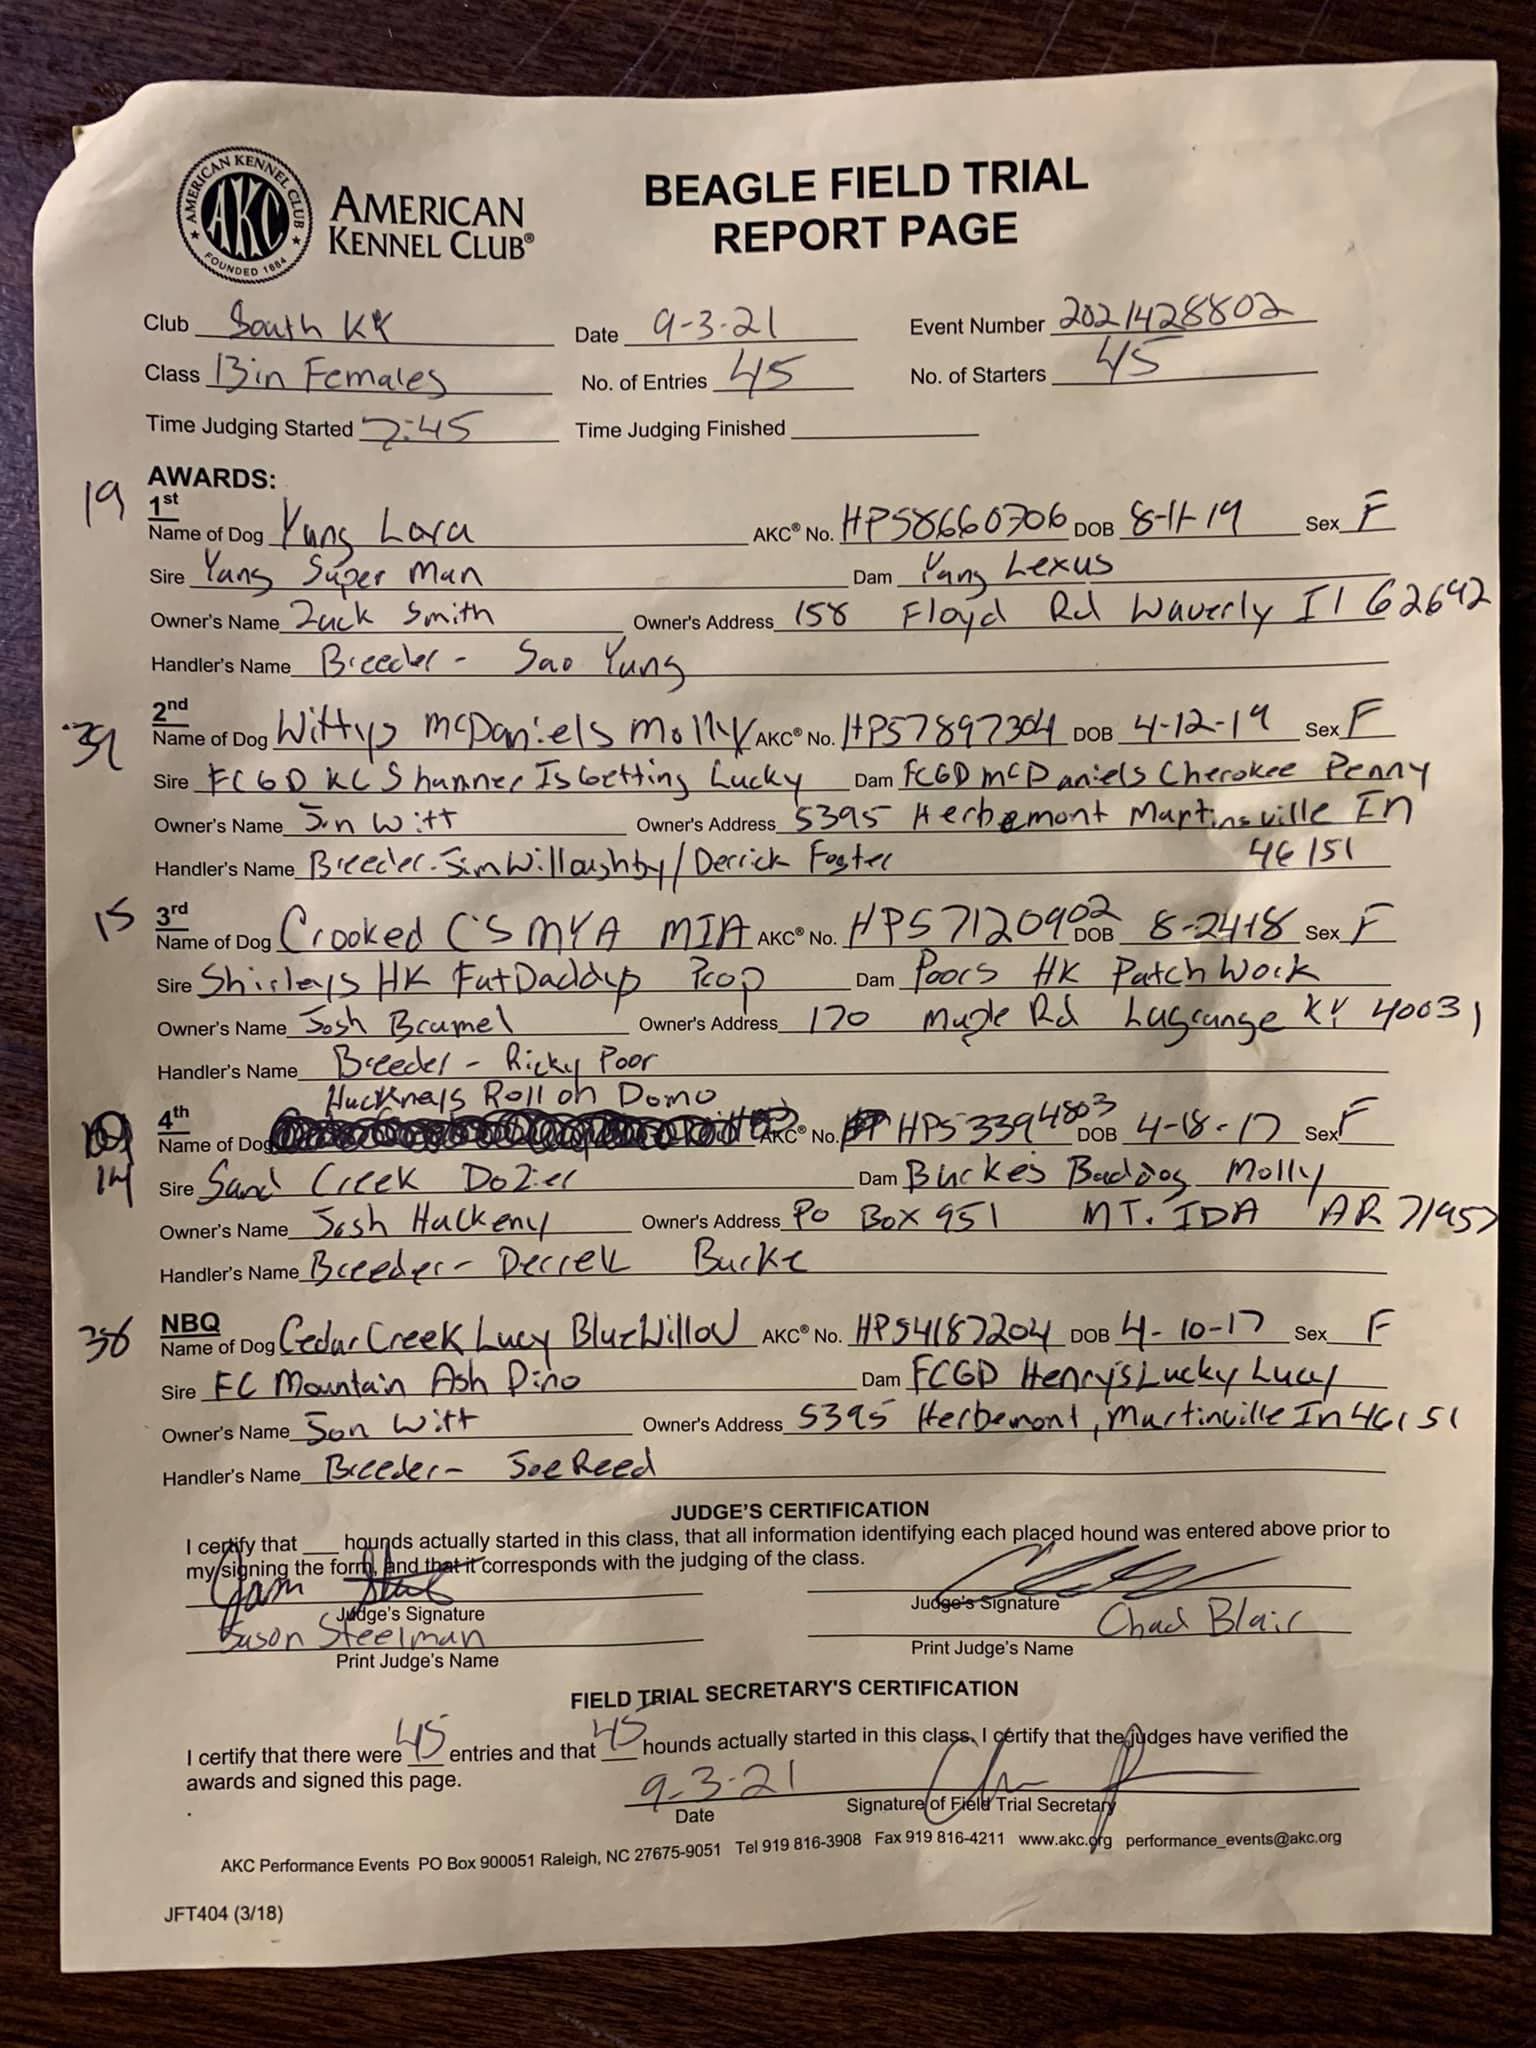 AMERICAN KENNEL CLUB
AKC
FOUNDED 1884
AMERICAN
KENNEL CLUB®
BEAGLE FIELD TRIAL
REPORT PAGE
Club South KY Date 9-3-21 Event Number 2021428802
Class 13 in Females No. of Entries 45 No. of Starters 45
Time Judging Started 7:45 Time Judging Finished
AWARDS:
19 1st
Name of Dog Yung Lora AKC® No. HP58660706 DOB 8-11-19 Sex F
Sire Yang Super Man Dam Yang Lexus
Owner's Name Zack Smith Owner's Address 158 Floyd Rd Waverly Il 62692
Handler's Name Breeder - Sao Yung
39 2nd
Name of Dog Wittys McDaniels Molly AKC® No. HP57897304 DOB 4-12-19 Sex F
Sire FCGD KC Shammer Is Getting Lucky Dam FCGD McDaniels Cherokee Penny
Owner's Name Jon Witt Owner's Address 5395 Herbemont Martinsville In
Handler's Name Breeder - Jim Willoughby/Derrick Foster 46151
15 3rd
Name of Dog Crooked C'S MYA MIA AKC® No. HP57120902 DOB 8-24-18 Sex F
Sire Shirleys HK FatDaddys Prop Dam Poors HK Patch Work
Owner's Name Josh Brumel Owner's Address 170 Maple Rd Lagrange KY 40031
Handler's Name Breeder - Ricky Poor
Hucknalls Roll on Domo
4th
Name of Dog AKC® No. HP53394803 DOB 4-18-17 Sex F
14 Sire Sand Creek Dozier Dam Burke's Baddog Molly
Owner's Name Josh Hackeny Owner's Address PO Box 951 MT. IDA AR 71957
Handler's Name Breeder - Derrek Burke
36 NBQ
Name of Dog Cedar Creek Lucy Blue Willow AKC® No. HP54187204 DOB 4-10-17 Sex F
Sire FC Mountain Ash Dino Dam FCGD Henry's Lucky Lucy
Owner's Name Jon Witt Owner's Address 5395 Herbemont, Martinville In 46151
Handler's Name Breeder - Joe Reed
JUDGE'S CERTIFICATION
I certify that ___ hounds actually started in this class, that all information identifying each placed hound was entered above prior to
my signing the form, and that it corresponds with the judging of the class.
Judge's Signature Judge's Signature
Jason Steelman Chad Blair
Print Judge's Name Print Judge's Name
FIELD TRIAL SECRETARY'S CERTIFICATION
I certify that there were 45 entries and that 45 hounds actually started in this class. I certify that the judges have verified the
awards and signed this page.
9-3-21
Date Signature of Field Trial Secretary
AKC Performance Events PO Box 900051 Raleigh, NC 27675-9051 Tel 919 816-3908 Fax 919 816-4211 www.akc.org performance_events@akc.org
JFT404 (3/18)